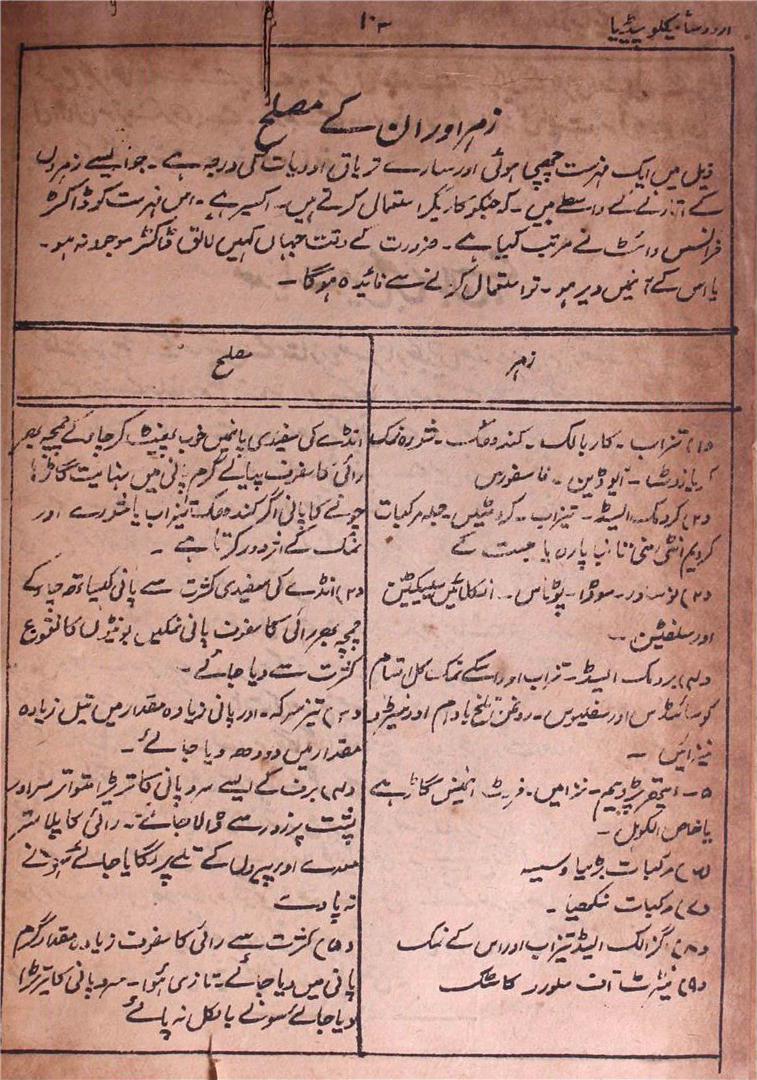 اردو سائیکلوپیڈیا
۱۰۳
زہر اور ان کے مصلح
ذیل میں ایک فہرست چھپی ہوئی اور سارے تریاق ادویات کی درجہ ہے۔ جو ایسے زہروں
کے اتارنے کے واسطے ہیں۔ کہ جنکو کاریگر استعمال کرتے ہیں۔ اکسیر ہے۔ اس فہرست کو ڈاکٹر
فرانسس وائٹ نے مرتب کیا ہے۔ ضرورت کے وقت جہاں کہیں لائق ڈاکٹر موجود نہ ہو۔
یا اس کے آنے میں دیر ہو۔ تو استعمال کرنے سے فائدہ ہوگا۔
زہر
(۱) تیزاب۔ کاربالک۔ گندھک۔ شورہ نمک
کریازوٹ۔ آیوڈین۔ فاسفورس
(۲) کرومک ایسڈ۔ تیزاب۔ جملہ مرکبات
کرویم انٹی منی تانبا پارہ یا جست کے
(۳) نوسادر۔ سوڈا۔ پوٹاس۔
اور سلفیٹن۔
(۴) ایسڈ۔ تیزاب اور اسکے نمک کل اقسام
روغن تلخ بادام اور
۵۔ ایتھر پٹرولیم۔
یا خاص الکوہل۔
(۶) مرکبات
(۷) مرکبات سنکھیا۔
(۸) اگزالک ایسڈ تیزاب اور اس کے نمک
(۹) نیٹرٹ آف سلور کاسٹک
مصلح
انڈے کی سفیدی پانی میں خوب پھینٹ کر جائے کے چمچہ بھر
رائی کا سفوف پیالے گرم پانی میں نہایت گاڑھا
چونے کا پانی اگر گندھک تیزاب یا شورے اور
نمک کے اثر دور کرتا ہے۔
(۲) انڈے کی سفیدی کثرت سے پانی کیساتھ چاء کے
چمچہ بھر رائی کا سفوف پانی نمکیں کا نقوع
کثرت سے دیا جائے۔
(۳) تیز سرکہ۔ اور پانی زیادہ مقدار میں تیل زیادہ
مقدار میں دودھ دیا جائے۔
(۴) برف کے ایسے سرد پانی کا تریڑا متواتر سر اور
پشت پر زور سے ڈالا جائے۔ رائی کا پلاستر
معدے اور پیر دل کے تلے پر لگایا جائے سونے
نہ پاوے
(۵) کثرت سے رائی کا سفوف زیادہ مقدار گرم
پانی میں دیا جائے۔ تازی ہوا۔ سرد پانی کا تریڑا
دیا جائے سونے بالکل نہ پائے